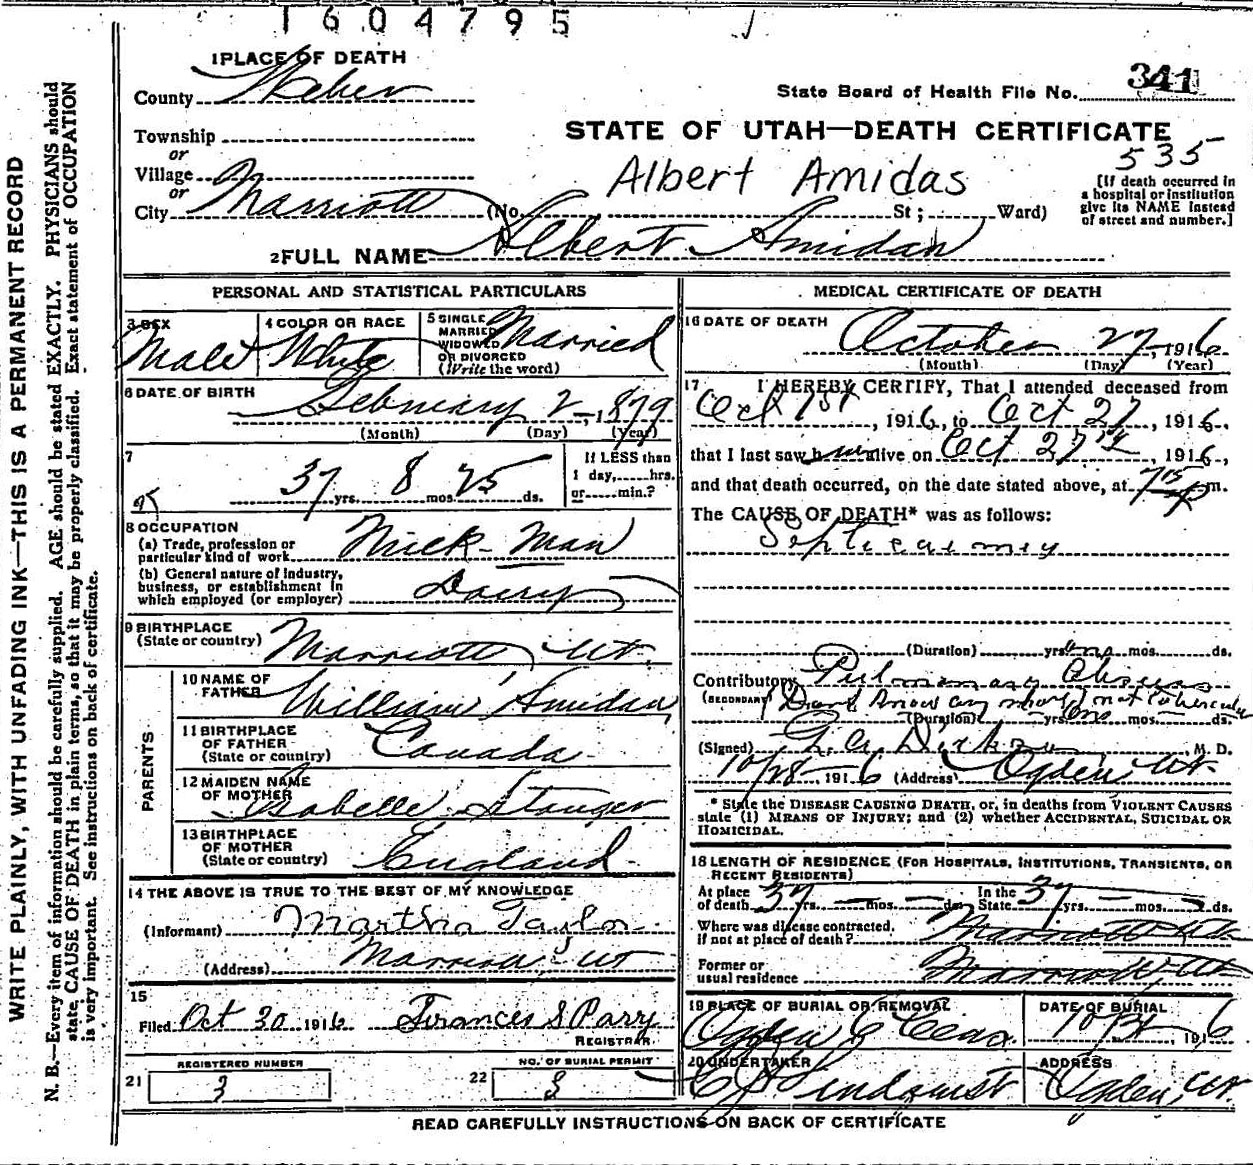 1604795
1 PLACE OF DEATH
County Weber
State Board of Health File No. 341
Township
or
STATE OF UTAH—DEATH CERTIFICATE
535
Village
or
Albert Amidas
[If death occurred in
a hospital or institution
give its NAME instead
of street and number.]
City Marriott (No. St; Ward)
2 FULL NAME Albert Amidan
PERSONAL AND STATISTICAL PARTICULARS
3 SEX
Male
4 COLOR OR RACE
White
5 SINGLE
MARRIED
WIDOWED
OR DIVORCED
(Write the word)
Married
6 DATE OF BIRTH
February 2 - 1879
(Month) (Day) (Year)
7
37 yrs. 8 mos. 25 ds.
If LESS than
1 day, hrs.
or min.?
8 OCCUPATION
(a) Trade, profession or
particular kind of work Milk-Man
(b) General nature of industry,
business, or establishment in
which employed (or employer) Dairy
9 BIRTHPLACE
(State or country) Marriott Ut.
PARENTS
10 NAME OF
FATHER William Amidan
11 BIRTHPLACE
OF FATHER
(State or country) Canada
12 MAIDEN NAME
OF MOTHER Isabelle Stanger
13 BIRTHPLACE
OF MOTHER
(State or country) England
14 THE ABOVE IS TRUE TO THE BEST OF MY KNOWLEDGE
(Informant) Martha Taylor
(Address) Marriott Ut
15
Filed Oct 30 1916 Frances S Parry
REGISTRAR
REGISTERED NUMBER
21 3
NO. OF BURIAL PERMIT
22 3
MEDICAL CERTIFICATE OF DEATH
16 DATE OF DEATH
October 27, 1916
(Month) (Day) (Year)
17 I HEREBY CERTIFY, That I attended deceased from
Oct 1st, 1916, to Oct 27, 1916,
that I last saw him alive on Oct 27, 1916,
and that death occurred, on the date stated above, at 7 15 p m.
The CAUSE OF DEATH* was as follows:
Septicaemia
(Duration) yrs. mos. ds.
Contributory Pulmonary Abscess
(SECONDARY) (Dont know any more) not tubercular
(Duration) yrs. mos. ds.
(Signed) M. D.
10/28—1916 (Address) Ogden Ut.
* State the DISEASE CAUSING DEATH, or, in deaths from VIOLENT CAUSES
state (1) MEANS OF INJURY; and (2) whether ACCIDENTAL, SUICIDAL OR
HOMICIDAL.
18 LENGTH OF RESIDENCE (FOR HOSPITALS, INSTITUTIONS, TRANSIENTS, OR
RECENT RESIDENTS)
At place
of death 37 yrs. — mos. — ds.
In the
State 37 yrs. — mos. — ds.
Where was disease contracted,
if not at place of death? Marriott Ut
Former or
usual residence Marriott Ut
19 PLACE OF BURIAL OR REMOVAL
Ogden C Cem.
DATE OF BURIAL
10/31, 1916
20 UNDERTAKER
Lindquist
ADDRESS
Ogden, Ut.
READ CAREFULLY INSTRUCTIONS ON BACK OF CERTIFICATE
WRITE PLAINLY, WITH UNFADING INK—THIS IS A PERMANENT RECORD
N. B.—Every item of information should be carefully supplied. AGE should be stated EXACTLY. PHYSICIANS should
state CAUSE OF DEATH in plain terms, so that it may be properly classified. Exact statement of OCCUPATION
is very important. See instructions on back of certificate.